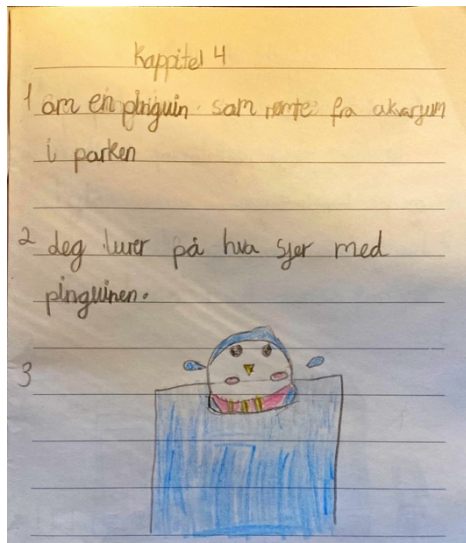 Kappitel 4
1 om en pinguin som rømte fra akvarjum
i parken
2 deg lurer på hva sjer med
pinguinen.
3